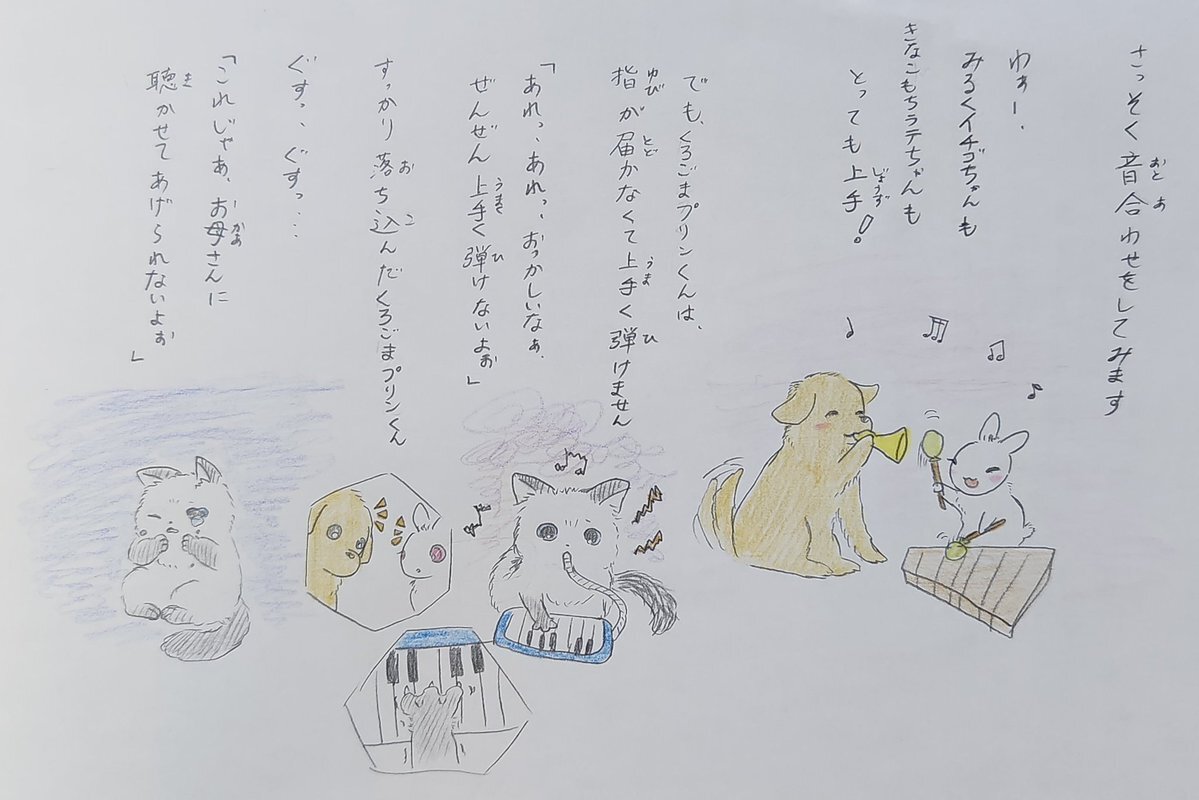 さっそく音合わせをしてみます
わぁー、
みるくイチゴちゃんも
きなこもちラテちゃんも
とっても上手!。
でも、くろごまプリンくんは、
指が届かなくて上手く弾けません
「あれっ、あれっ、おっかしいなぁ、
ぜんぜん上手く弾けないよぉ」
すっかり落ち込んだくろごまプリンくん
ぐすっ、ぐすっ…
「これじゃあ、お母さんに
聴かせてあげられないよぉ」